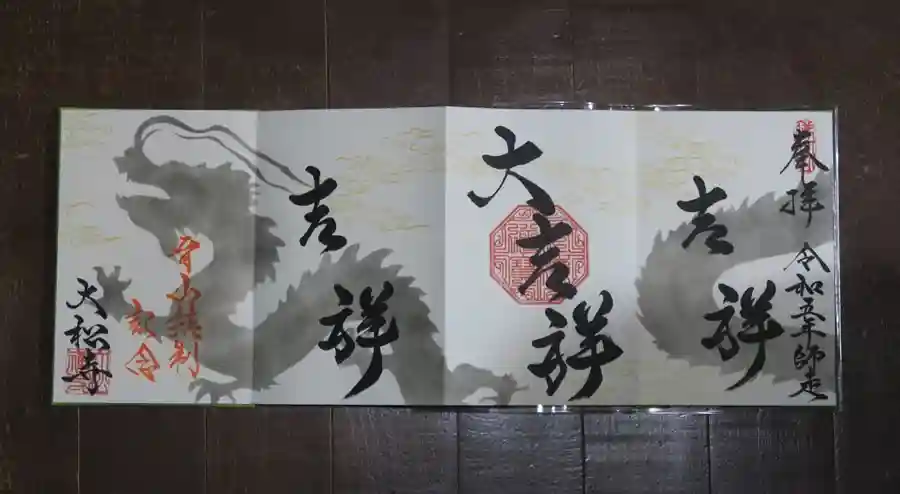 奉拝
令和五年師走
吉祥
大吉祥
吉祥
晋山結制
記念
大松寺